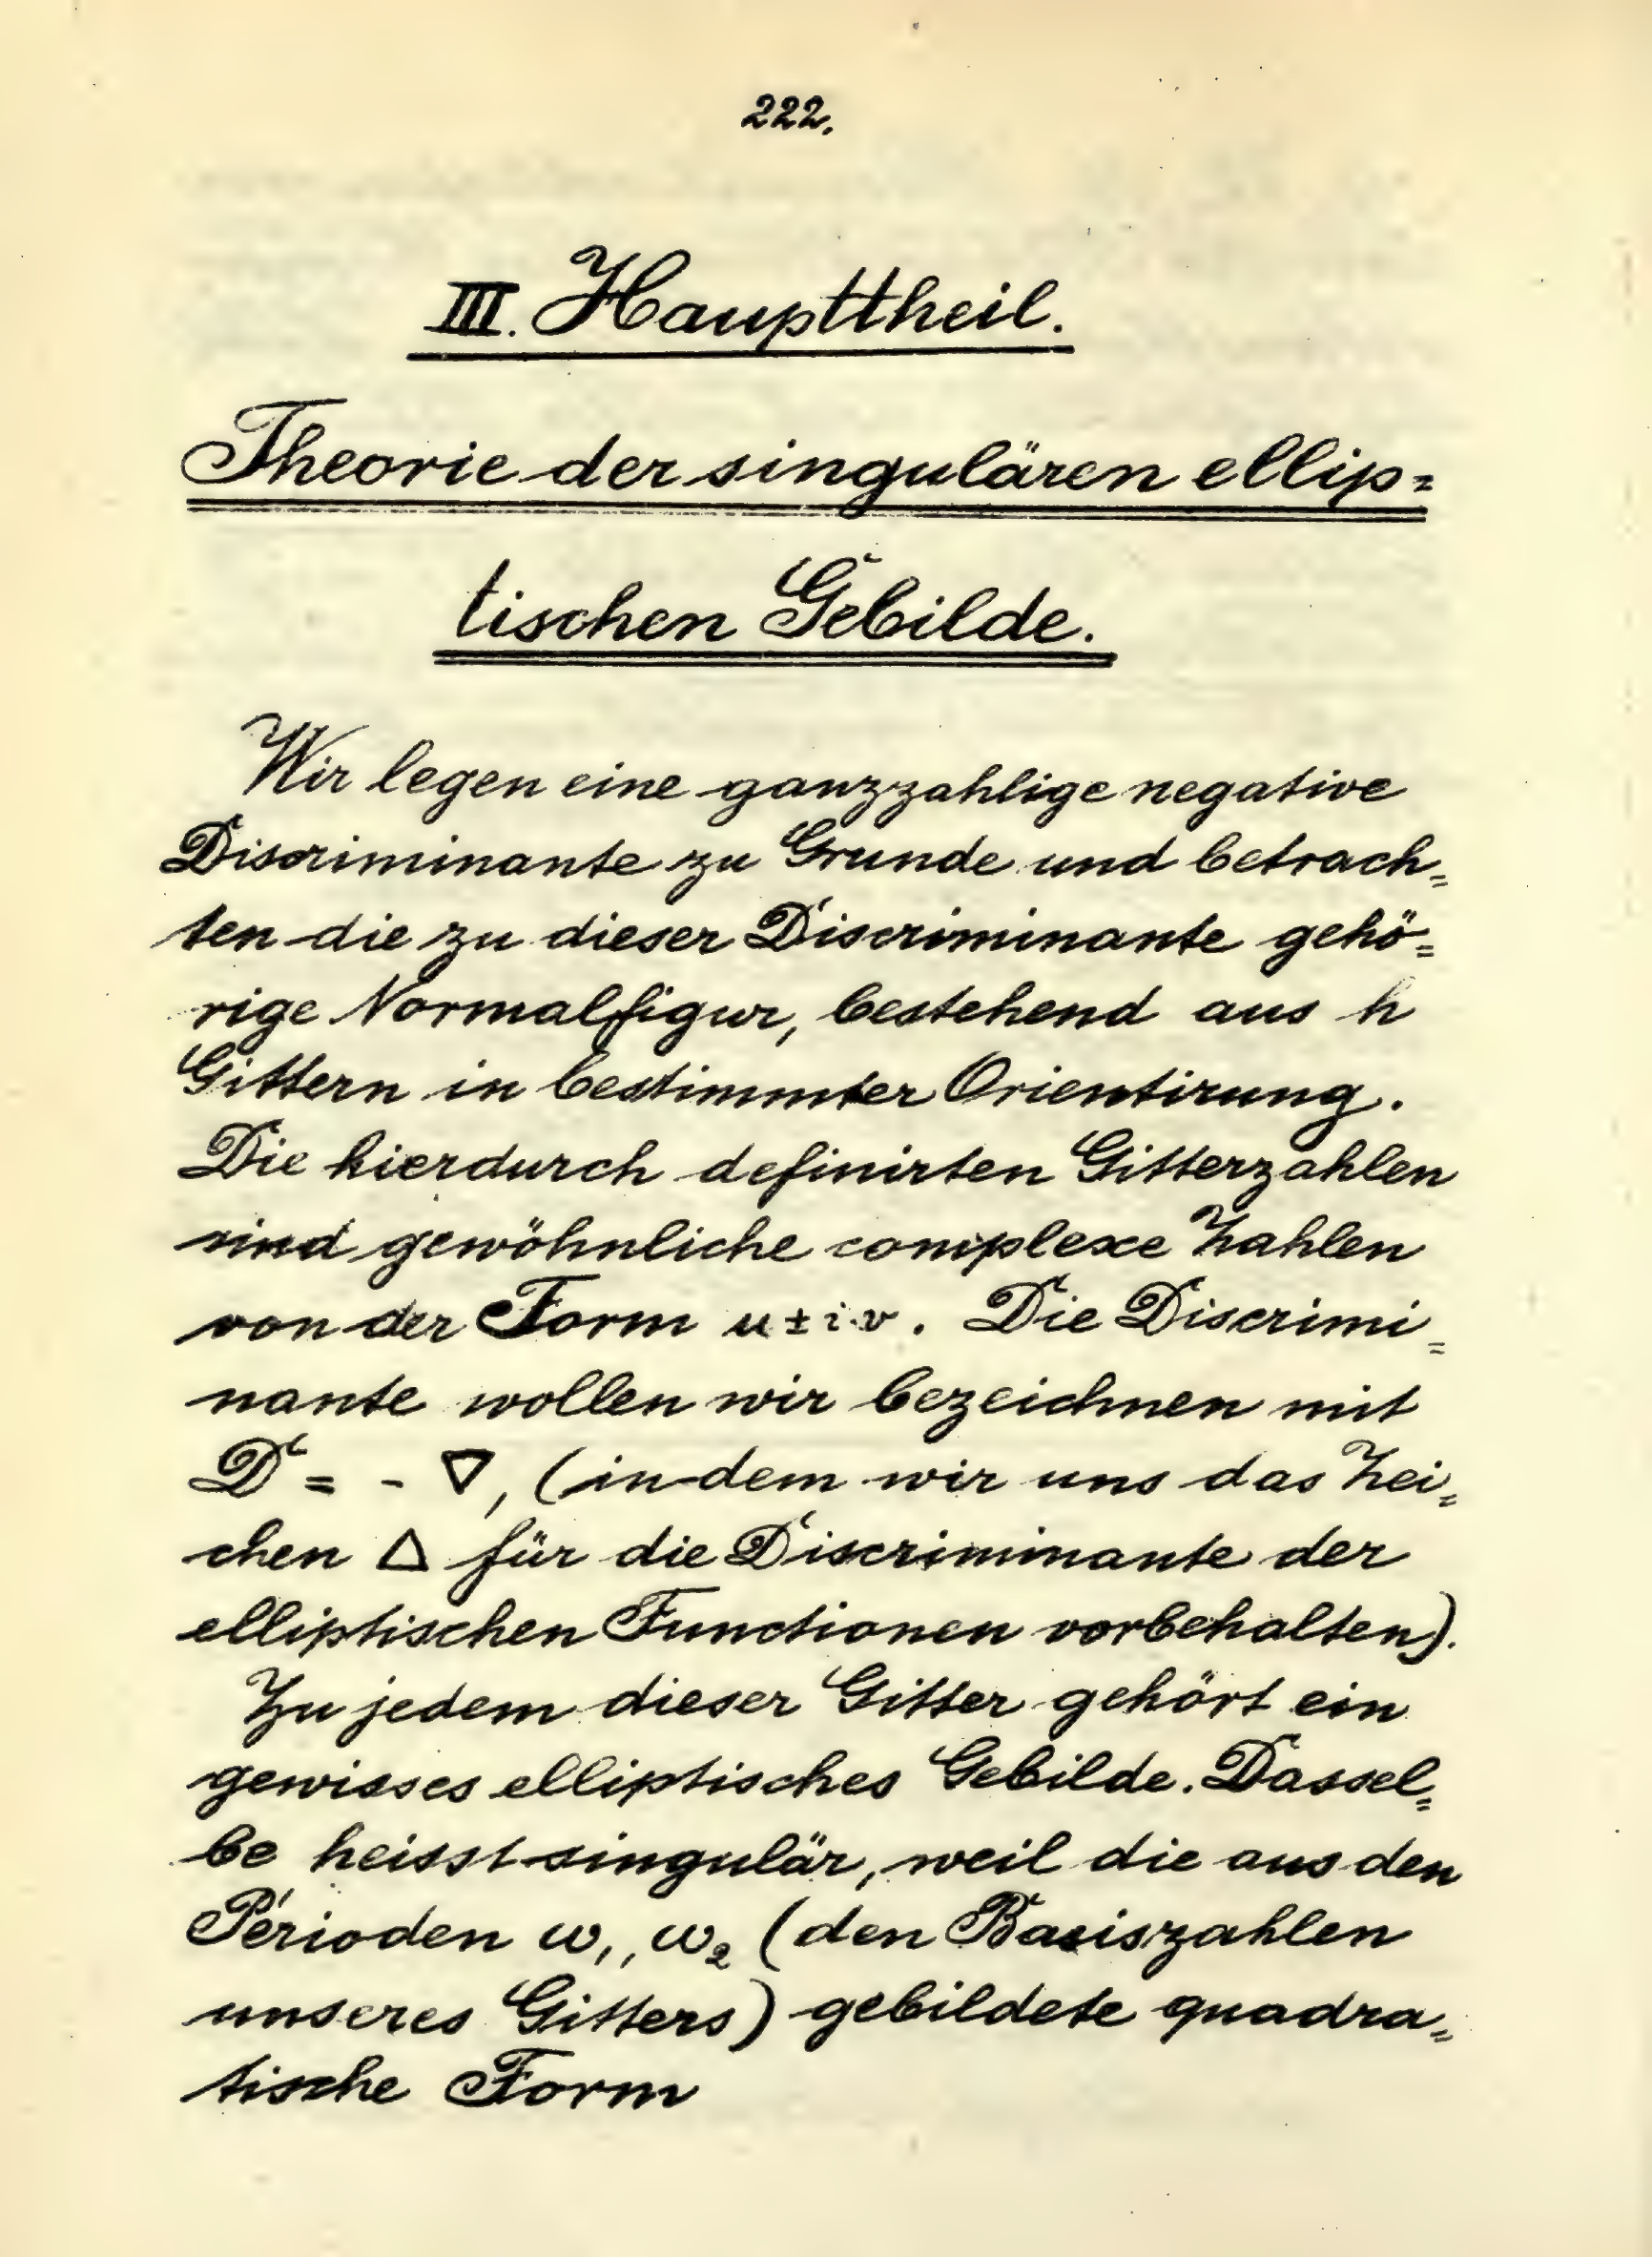 222.
III. Haupttheil.
Theorie der singulären ellip=
tischen Gebilde.
Wir legen eine ganzzahlige negative
Discriminante zu Grunde und betrach=
ten die zu dieser Discriminante gehö=
rige Normalfigur, bestehend aus h
Gittern in bestimmter Orientirung.
Die hierdurch definirten Gitterzahlen
sind gewöhnliche complexe Zahlen
von der Form u ± i.v. Die Discrimi=
nante wollen wir bezeichnen mit
D = - ∇, (indem wir uns das Zei=
chen Δ für die Discriminante der
elliptischen Functionen vorbehalten).
Zu jedem dieser Gitter gehört ein
gewisses elliptisches Gebilde. Dassel=
be heisst singulär, weil die aus den
Perioden ω₁, ω₂ (den Basiszahlen
unseres Gitters) gebildete quadra=
tische Form